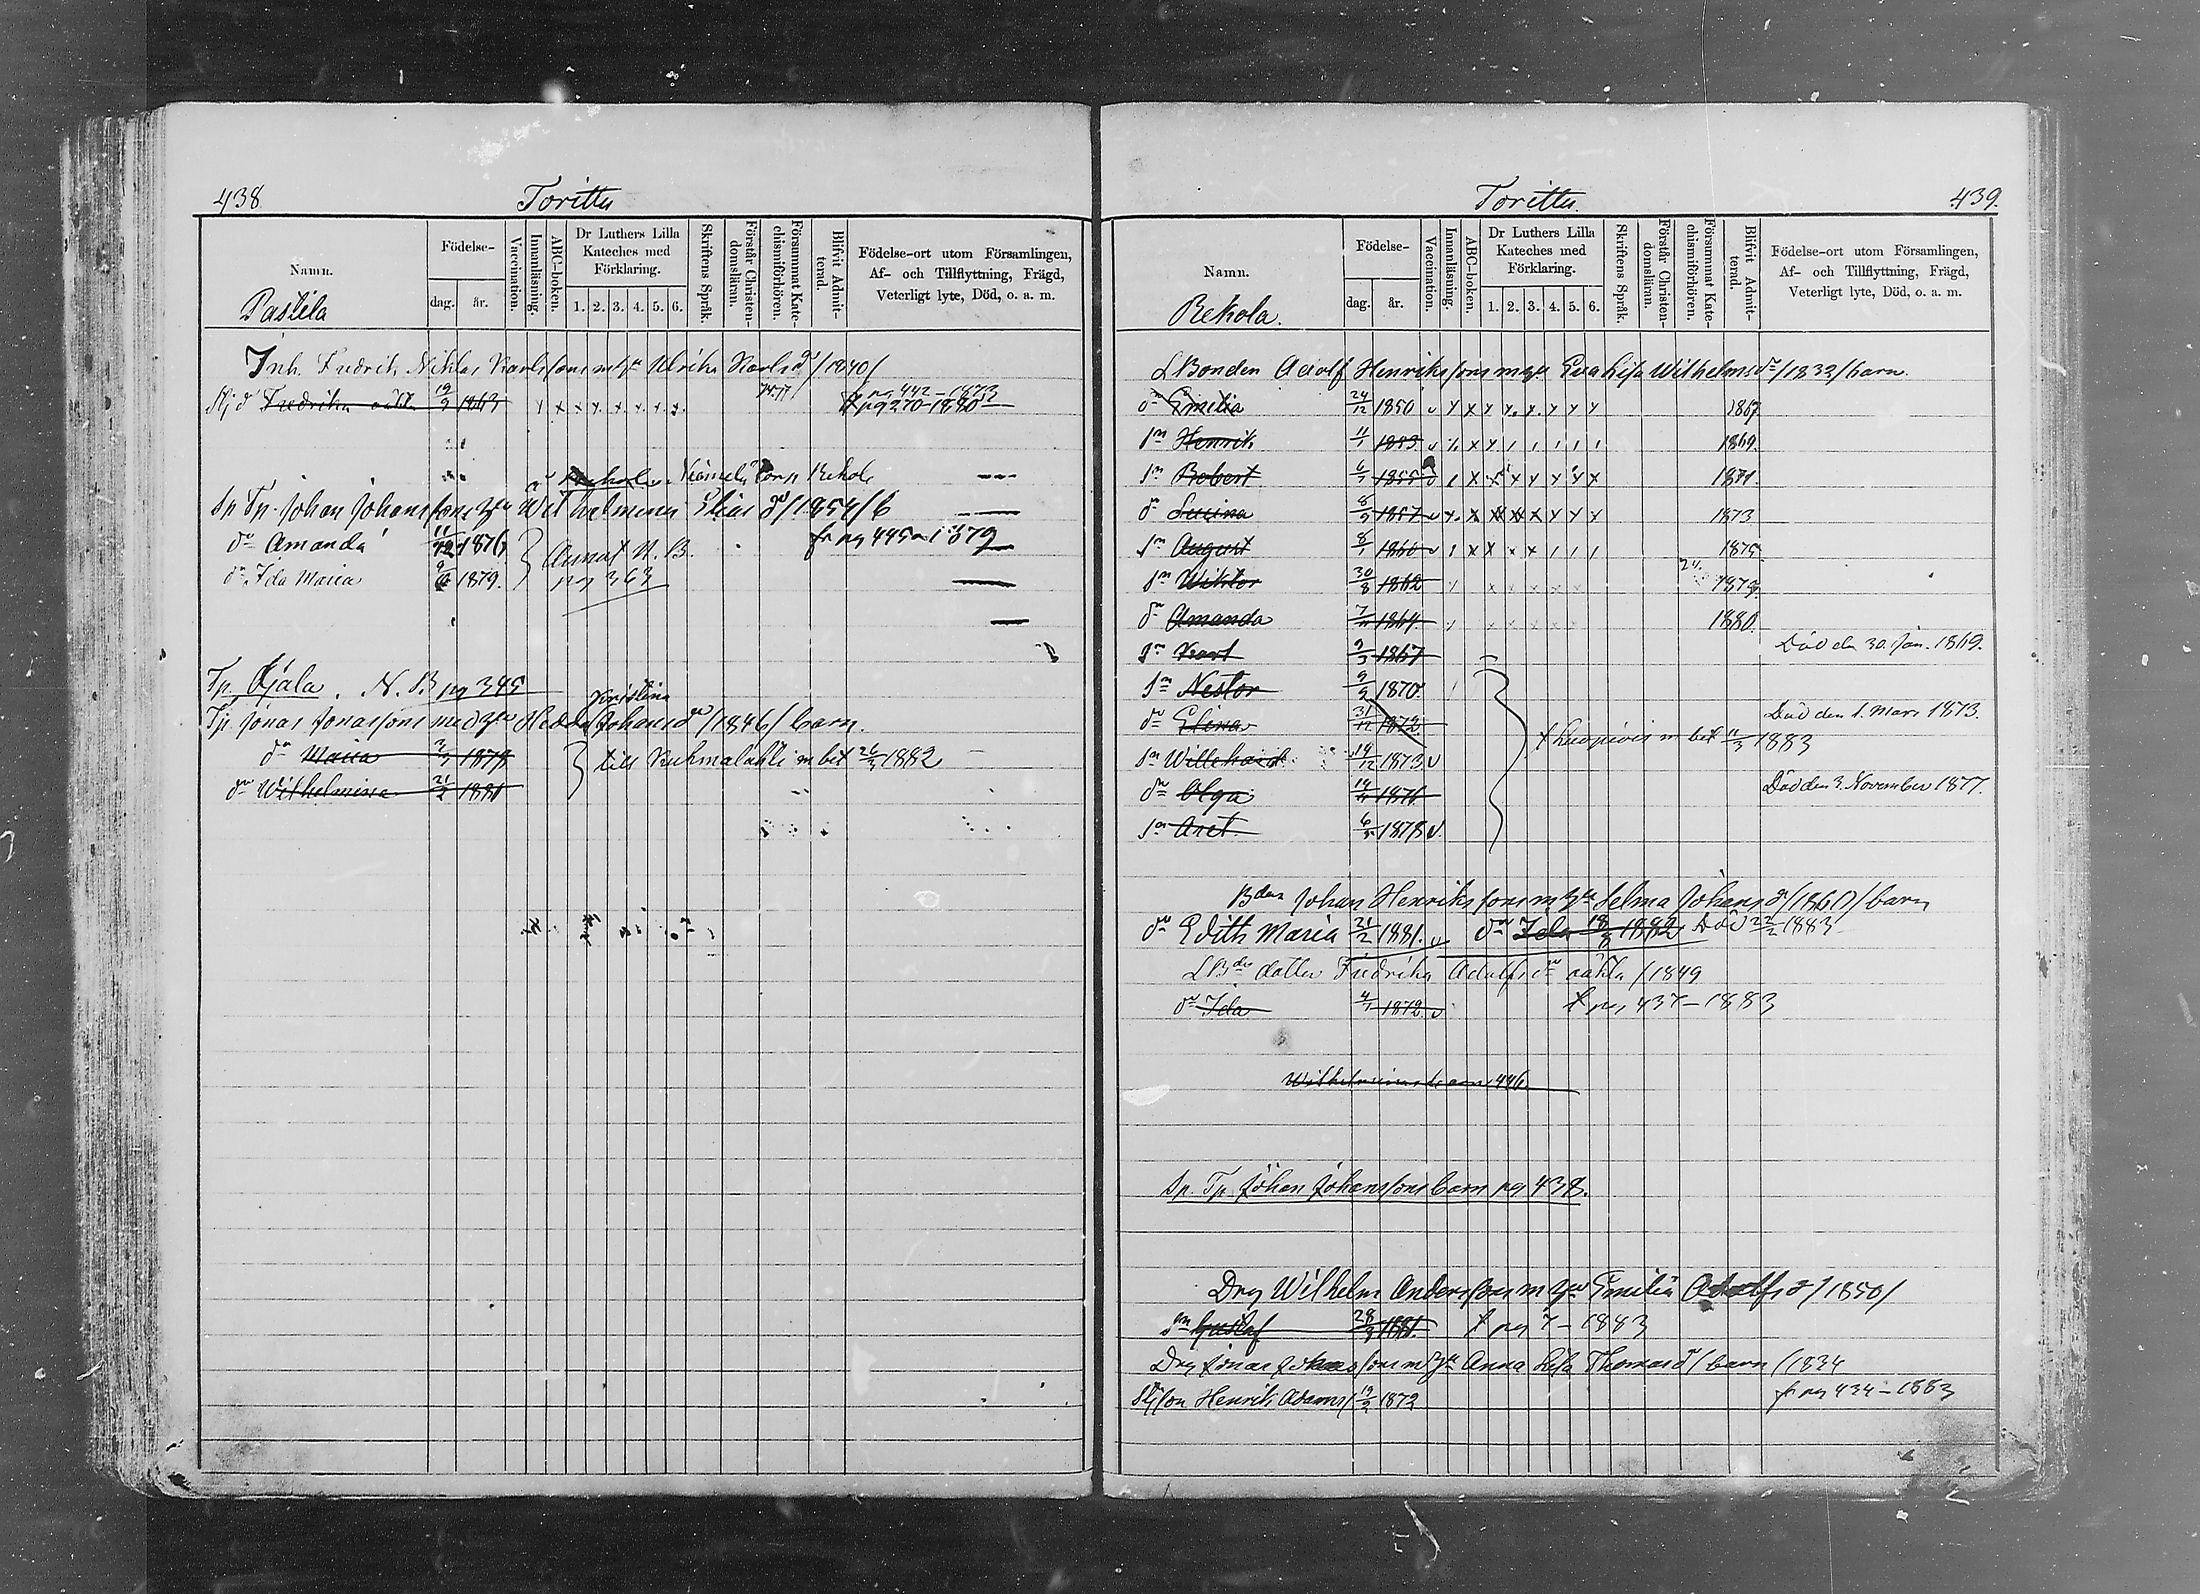 438 Torittu
Namn. Födelse- dag. år. Vaccination. Innanläsning. ABC-boken. Dr Luthers Lilla Kateches med Förklaring. 1. 2. 3. 4. 5. 6. Skriftens Språk. Förstår Christendomsläran. Försummat Katechismiförhören. Blifvit Admitterad. Födelse-ort utom Församlingen, Af- och Tillflyttning, Frägd, Veterligt lyte, Död, o. a. m.
Pastila
Inh. Fredrik Niklas Karlssons m hu Ulrika Karls dr /1840/
pg 442-1873
Fredrika 19/9 1863 pg 270-1880
Rekola
Sp Tp. Johan Johanssons hu Wilhelmina Elias dr /1854/ b
dr Amanda 11/12 1876 Annat N.B. fr pg 445 1879
dr Ida Maria 9/6 1879. pag 363
Tp. Ojala. N.B pg 345
Kristina
Tp. Jonas Jonassons med hu Hedda Johans dr /1846/ barn.
dr Maria 3/3 1878 till Kuhmalahti m bet 26/3 1882
dr Wilhelmina 21/2 1881
Torittu. 439.
Namn. Födelse- dag. år. Vaccination. Innanläsning. ABC-boken. Dr Luthers Lilla Kateches med Förklaring. 1. 2. 3. 4. 5. 6. Skriftens Språk. Förstår Christendomsläran. Försummat Katechismiförhören. Blifvit Admitterad. Födelse-ort utom Församlingen, Af- och Tillflyttning, Frägd, Veterligt lyte, Död, o. a. m.
Rekola.
LBonden Adolf Henrikssons m hu Eva Lisa Wilhelmsdr /1833/ barn.
dr Emilia 24/12 1850 1867
sn Henrik 11/1 1853 1869.
sn Robert 6/7 1855 1871
dr Lucina 8/9 1857 1873
sn August 8/1 1860 1875
sn Wiktor 30/8 1862 1879.
dr Amanda 1864 1880.
sn Karl 9/3 1867 Död den 30. Jan. 1869.
sn Nestor 9/9 1870.
dr Elina 31/12 1872 Död den 1. Mars 1873.
Kuopio m bet 11/3 1883
sn Willehard 14/12 1873
dr Olga 1876 Död den 3. November 1877.
sn Axel 6/5 1878
Bden Johan Henrikssons m hu Selma Johans dr /1860/ barn
dr Edith Maria 21/2 1881. dr Ida 18/8 1882 Död 22/2 1883
LBds dotter Fredrika Adolfs dr oäkta /1849
dr Ida 4/1 1872 pg 437-1883
Wilhelminas barn 446
Sp. Tp. Johan Johanssons barn pg 438.
Drg Wilhelm Anderssons m hu Emilia Adolfs d /1850/
sn Gustaf 28/3 1881. pg 7-1883
Drg Jonas Johanssons m hu Anna Lisa Thomasdr / barn /1834
Henrik Adams 19/2 1872 fr pg 434-1883